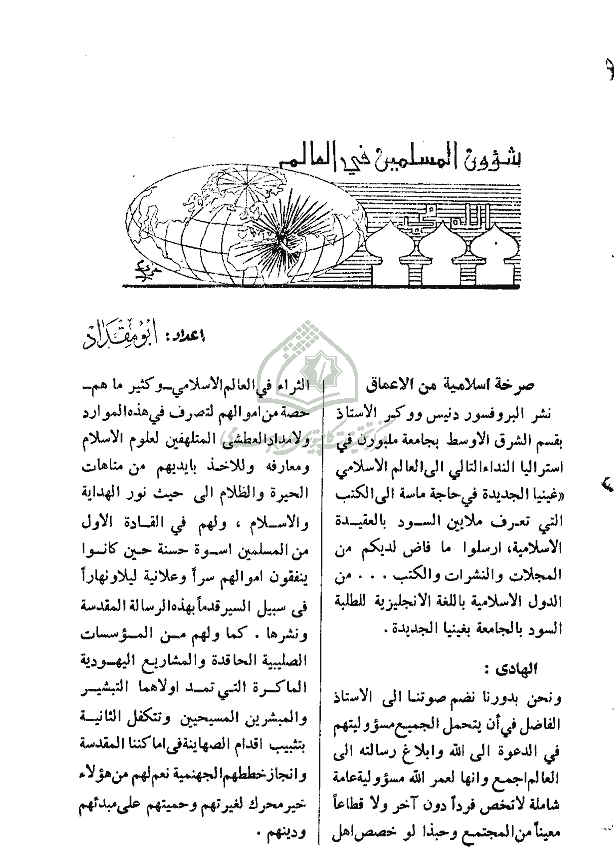 شؤون المسلمين في العالم
اعداد: ابو مقداد
صرخة اسلامية من الاعماق
نشر البروفسور دنيس ووكير الأستاذ
بقسم الشرق الأوسط بجامعة ملبورن في
استراليا النداء التالي الى العالم الاسلامي
«غينيا الجديدة في حاجة ماسة الى الكتب
التي تعرف ملايين السود بالعقيدة
الاسلامية، ارسلوا ما فاض لديكم من
المجلات والنشرات والكتب . . . من
الدول الاسلامية باللغة الانجليزية للطلبة
السود بالجامعة بغينيا الجديدة .
الهادى :
ونحن بدورنا نضم صوتنا الى الاستاذ
الفاضل في أن يتحمل الجميع مسؤوليتهم
في الدعوة الى الله وابلاغ رسالته الى
العالم اجمع وانها لعمر الله مسؤولية عامة
شاملة لاتخص فرداً دون آخر ولا قطاعاً
معيناً من المجتمع وحبذا لو خصص اهل
الثراء في العالم الاسلامي ـ وكثير ما هم ـ
حصة من اموالهم لتصرف في هذه الموارد
ولامداد العطشى المتلهفين لعلوم الاسلام
ومعارفه وللاخذ بايديهم من متاهات
الحيرة والظلام الى حيث نور الهداية
والاسلام ، ولهم في القادة الأول
من المسلمين اسوة حسنة حين كانوا
ينفقون اموالهم سراً وعلانية ليلا ونهاراً
فى سبيل السير قدماً بهذه الرسالة المقدسة
ونشرها . كما ولهم من المؤسسات
الصليبية الحاقدة والمشاريع اليهودية
الماكرة التي تمد اولاهما التبشير
والمبشرين المسيحيين وتتكفل الثانية
بتثبيب اقدام الصهاينة فى اماكننا المقدسة
وانجاز خططهم الجهنمية نعم لهم من هؤلاء
خير محرك لغيرتهم وحميتهم على مبدئهم
ودينهم .